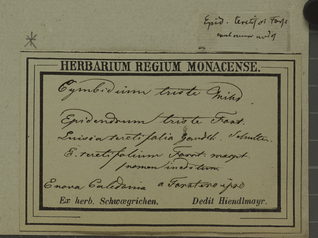 Epid. teretifol Forst
HERBARIUM REGIUM MONACENSE.
Cymbidium triste Willd.
Epidendrum triste Forst.
Luisia teretifolia Gaudh.
E. teretifolium Forst.
nomen ineditum
E nova Caledonia a Forstero ipso
Ex herb. Schwægrichen. Dedit Hiendlmayr.